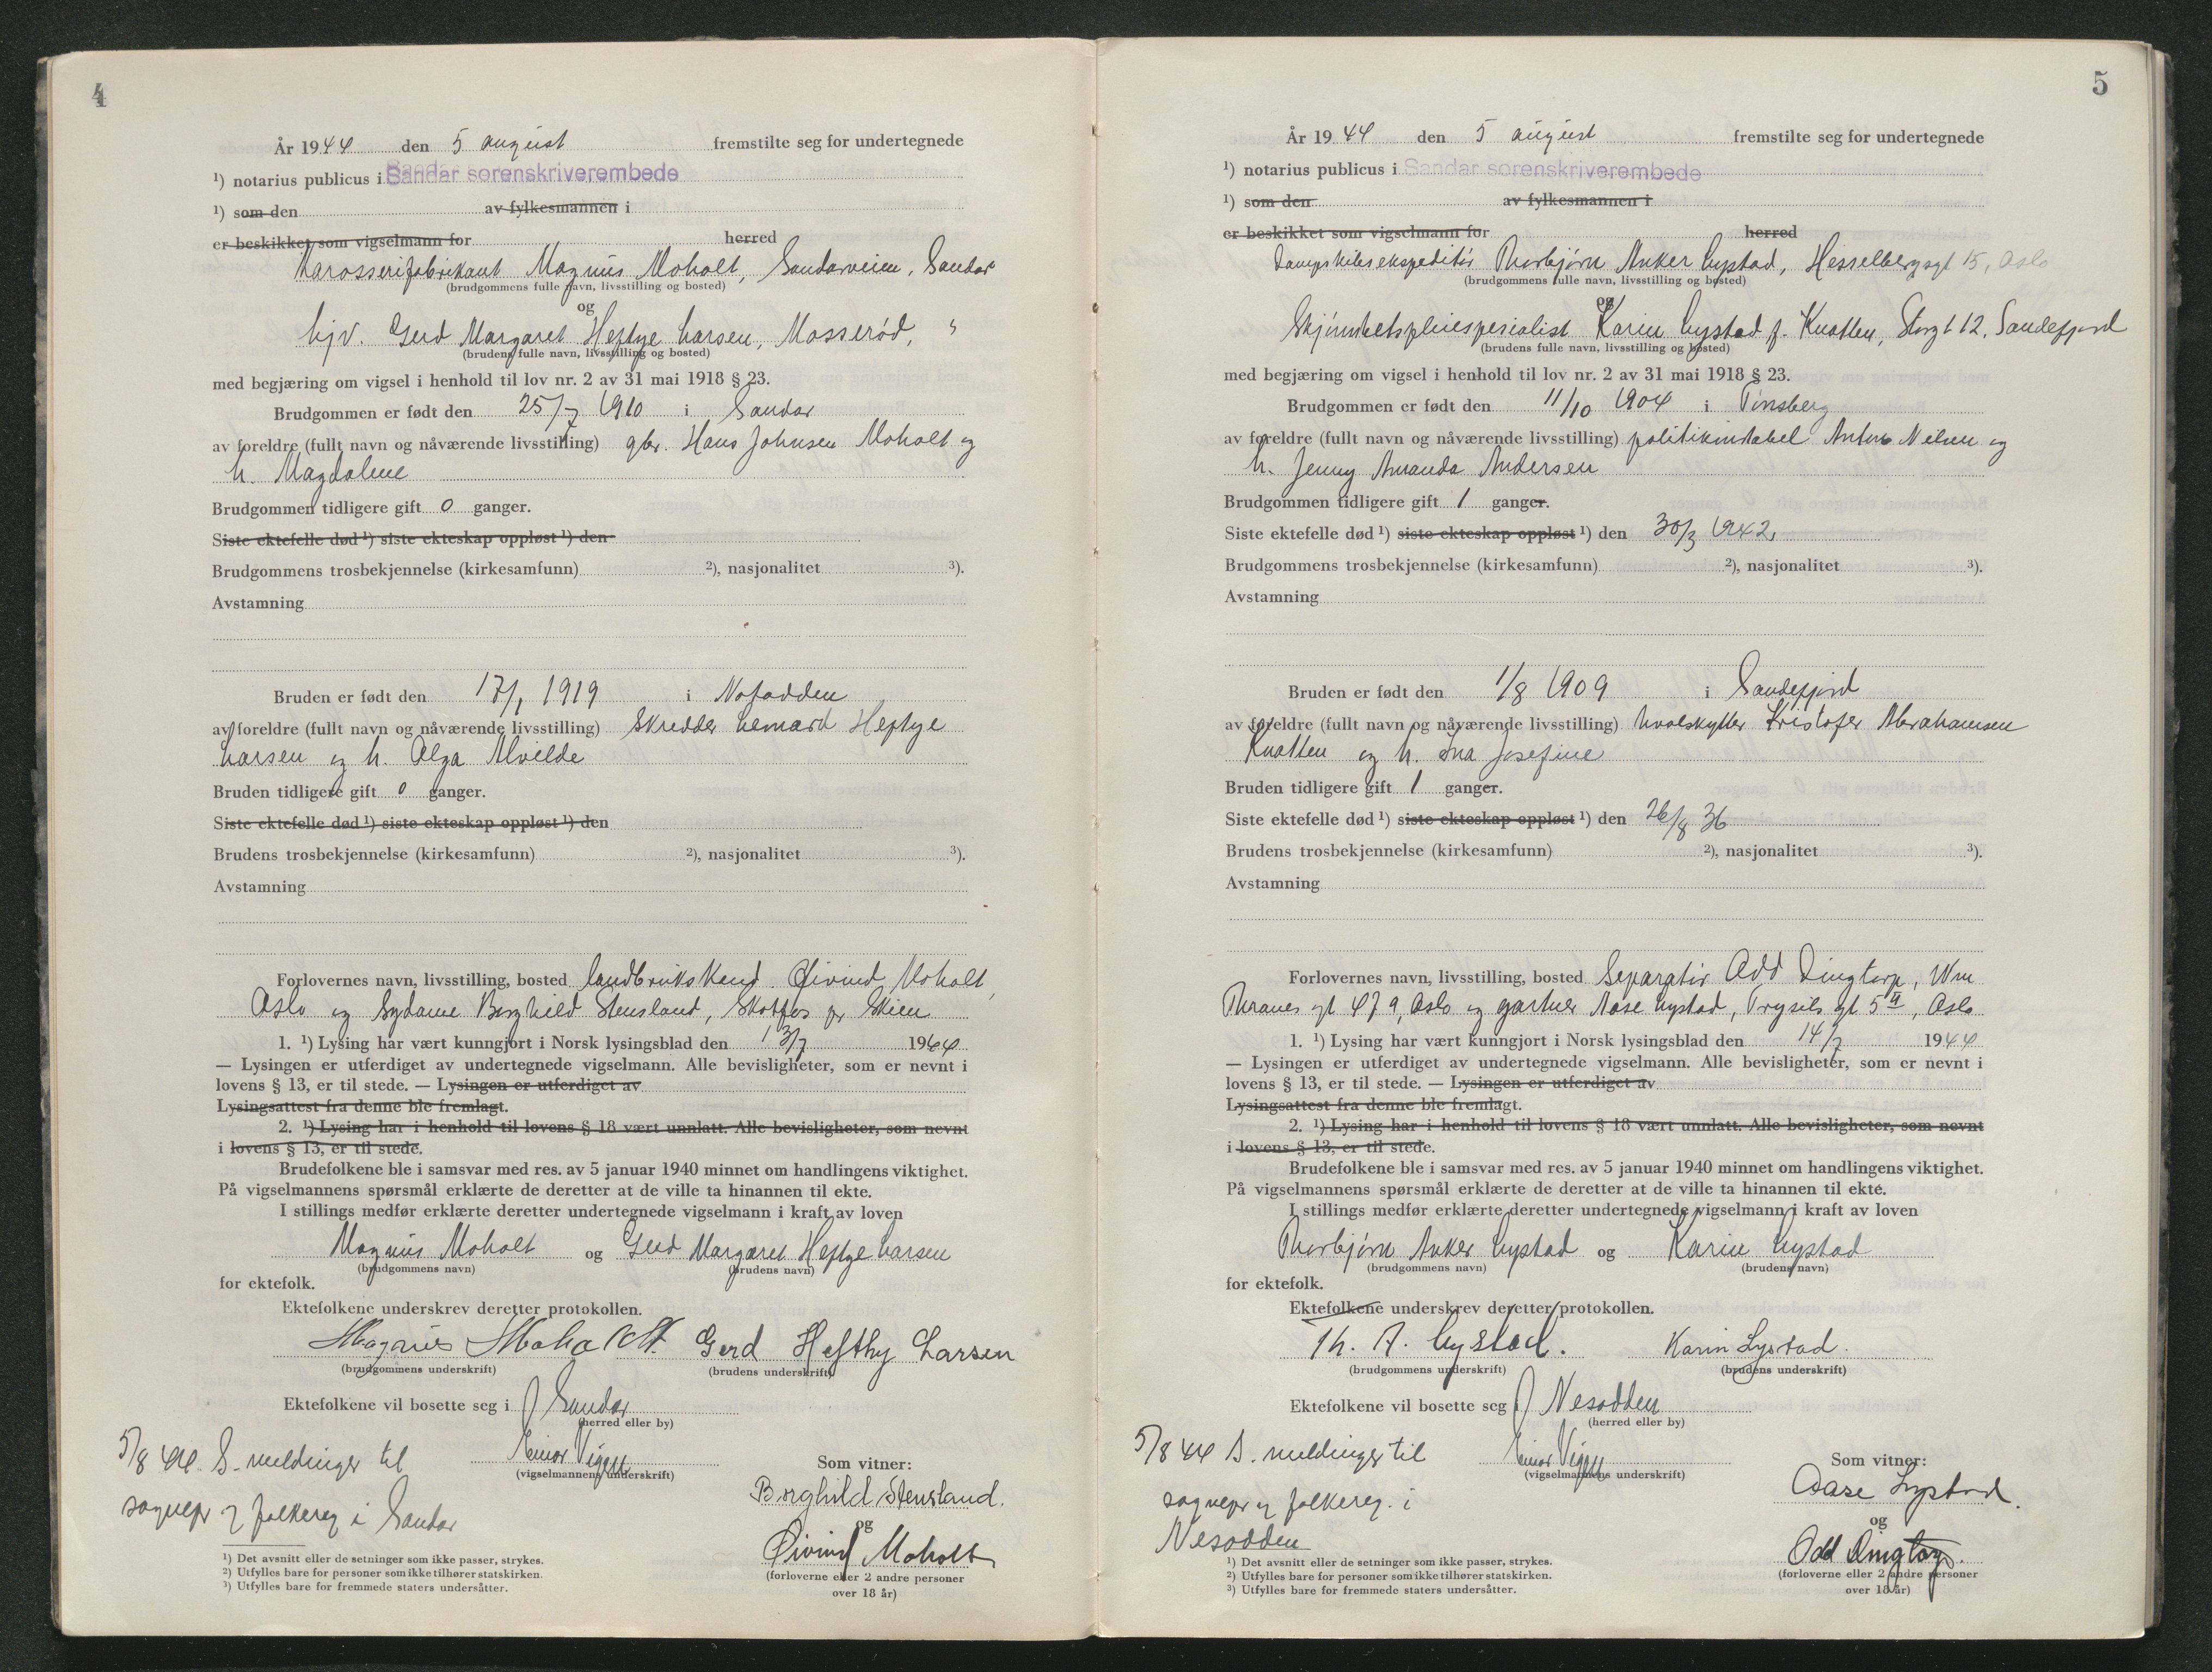 4
År 1944 den 5 august fremstilte seg for undertegnede
¹) notarius publicus i Sandar sorenskriverembede
¹) som den av fylkesmannen i
er beskikket som vigselmann for herred
Karosserifabrikant Magnus Moholt, Sandarveien, Sandar
(brudgommens fulle navn, livsstilling og bosted)
og
hjv. Gerd Margaret Heftye Larsen, Mosserød, "
(brudens fulle navn, livsstilling og bosted)
med begjæring om vigsel i henhold til lov nr. 2 av 31 mai 1918 § 23.
Brudgommen er født den 25/7 1910 i Sandar
av foreldre (fullt navn og nåværende livsstilling) gbr. Hans Johnsen Moholt og
h. Magdalene
Brudgommen tidligere gift 0 ganger.
Siste ektefelle død ¹) siste ekteskap oppløst ¹) den
Brudgommens trosbekjennelse (kirkesamfunn) ²), nasjonalitet ³).
Avstamning
Bruden er født den 17/1 1919 i Notodden
av foreldre (fullt navn og nåværende livsstilling) Skredder Lenard Heftye
Larsen og h. Olga Alvilde
Bruden tidligere gift 0 ganger.
Siste ektefelle død ¹) siste ekteskap oppløst ¹) den
Brudens trosbekjennelse (kirkesamfunn) ²), nasjonalitet ³).
Avstamning
Forlovernes navn, livsstilling, bosted landbrukskand. Øivind Moholt,
Oslo og Sydame Borghild Stensland, Skotfos pr Skien
1. ¹) Lysing har vært kunngjort i Norsk lysingsblad den 13/7 1944
— Lysingen er utferdiget av undertegnede vigselmann. Alle bevisligheter, som er nevnt i
lovens § 13, er til stede. — Lysingen er utferdiget av
Lysingsattest fra denne ble fremlagt.
2. ¹) Lysing har i henhold til lovens § 18 vært unnlatt. Alle bevisligheter, som nevnt
i lovens § 13, er til stede.
Brudefolkene ble i samsvar med res. av 5 januar 1940 minnet om handlingens viktighet.
På vigselmannens spørsmål erklærte de deretter at de ville ta hinannen til ekte.
I stillings medfør erklærte deretter undertegnede vigselmann i kraft av loven
Magnus Moholt og Gerd Margaret Heftye Larsen
(brudgommens navn) (brudens navn)
for ektefolk.
Ektefolkene underskrev deretter protokollen.
Magnus Moholt Gerd Hefthy Larsen
(brudgommens underskrift) (brudens underskrift)
Ektefolkene vil bosette seg i Sandar
(herred eller by)
5/8 44. S. meldinger til
Einar Viggen
(vigselmannens underskrift)
Som vitner:
Borghild Stensland.
sognepr og folkereg i Sandar
og
Øivind Moholt
(forloverne eller 2 andre personer
over 18 år)
¹) Det avsnitt eller de setninger som ikke passer, strykes.
²) Utfylles bare for personer som ikke tilhører statskirken.
³) Utfylles bare for fremmede staters undersåtter.
5
År 1944 den 5 august fremstilte seg for undertegnede
¹) notarius publicus i Sandar sorenskriverembede
¹) som den av fylkesmannen i
er beskikket som vigselmann for herred
Dampskibsekspeditør Thorbjørn Anker Lystad, Hesselbergsgt 15, Oslo
(brudgommens fulle navn, livsstilling og bosted)
og
Skjønnhetspleiespesialist Karin Lystad f. Knatten, Storgt 12, Sandefjord
(brudens fulle navn, livsstilling og bosted)
med begjæring om vigsel i henhold til lov nr. 2 av 31 mai 1918 § 23.
Brudgommen er født den 11/10 1904 i Tønsberg
av foreldre (fullt navn og nåværende livsstilling) politikonstabel Anton Nilsen og
h. Jenny Amanda Andersen
Brudgommen tidligere gift 1 ganger.
Siste ektefelle død ¹) siste ekteskap oppløst ¹) den 30/3 1942.
Brudgommens trosbekjennelse (kirkesamfunn) ²), nasjonalitet ³).
Avstamning
Bruden er født den 1/8 1909 i Sandefjord
av foreldre (fullt navn og nåværende livsstilling) hvalskytter Kristofer Abrahamsen
Knatten og h. Ina Josefine
Bruden tidligere gift 1 ganger.
Siste ektefelle død ¹) siste ekteskap oppløst ¹) den 26/8 36
Brudens trosbekjennelse (kirkesamfunn) ²), nasjonalitet ³).
Avstamning
Forlovernes navn, livsstilling, bosted Separatør Odd Dingtorp, Wm
Thranes gt 47 a, Oslo og gartner Aase Lystad, Trysils gt 5 II, Oslo
1. ¹) Lysing har vært kunngjort i Norsk lysingsblad den 14/7 1944
— Lysingen er utferdiget av undertegnede vigselmann. Alle bevisligheter, som er nevnt i
lovens § 13, er til stede. — Lysingen er utferdiget av
Lysingsattest fra denne ble fremlagt.
2. ¹) Lysing har i henhold til lovens § 18 vært unnlatt. Alle bevisligheter, som nevnt
i lovens § 13, er til stede.
Brudefolkene ble i samsvar med res. av 5 januar 1940 minnet om handlingens viktighet.
På vigselmannens spørsmål erklærte de deretter at de ville ta hinannen til ekte.
I stillings medfør erklærte deretter undertegnede vigselmann i kraft av loven
Thorbjørn Anker Lystad og Karin Lystad
(brudgommens navn) (brudens navn)
for ektefolk.
Ektefolkene underskrev deretter protokollen.
Th. A. Lystad. Karin Lystad.
(brudgommens underskrift) (brudens underskrift)
Ektefolkene vil bosette seg i Nesodden
(herred eller by)
5/8 44 S. meldinger til
Einar Viggen
(vigselmannens underskrift)
Som vitner:
Aase Lystad.
sognepr og folkereg. i
Nesodden
og
Odd Dingtorp.
(forloverne eller 2 andre personer
over 18 år)
¹) Det avsnitt eller de setninger som ikke passer, strykes.
²) Utfylles bare for personer som ikke tilhører statskirken.
³) Utfylles bare for fremmede staters undersåtter.